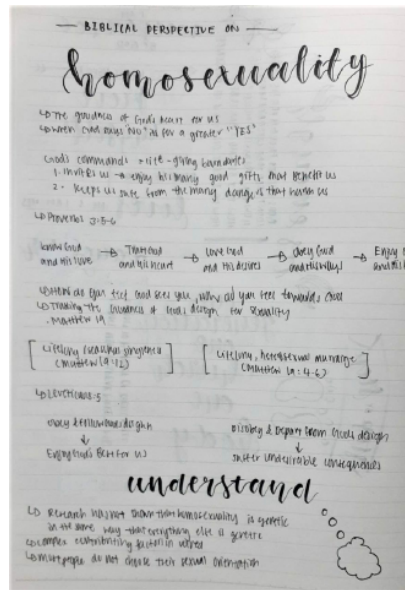 BIBLICAL PERSPECTIVE ON
homosexuality
↳ The goodness of God's heart for us
↳ When God says "No" is for a greater "YES"
God's commands = life-giving boundaries
1. Invites us to enjoy his many good gifts that benefit us
2. Keeps us safe from the many dangers that harm us
↳ Proverbs 3:5-6
know God → Trust God → Love God → obey God → Enjoy
and His love and His heart and His desires and His ways and
↳ How do you feel God sees you, why do you feel towards God
↳ the goodness of God's design for sexuality
. Matthew 19
[ Lifelong singleness ] [ Lifelong, heterosexual marriage ]
(Matthew 19:12) (Matthew 19:4-6)
↳ 5
obey & follow God's design Disobey & Depart from God's design
↓ ↓
Enjoy God's Best for Us suffer undesirable consequences
understand
↳ Research has not shown that homosexuality is genetic
in the same way that everything else is genetic
↳ complex contributing factors
↳ most people do not choose their sexual orientation